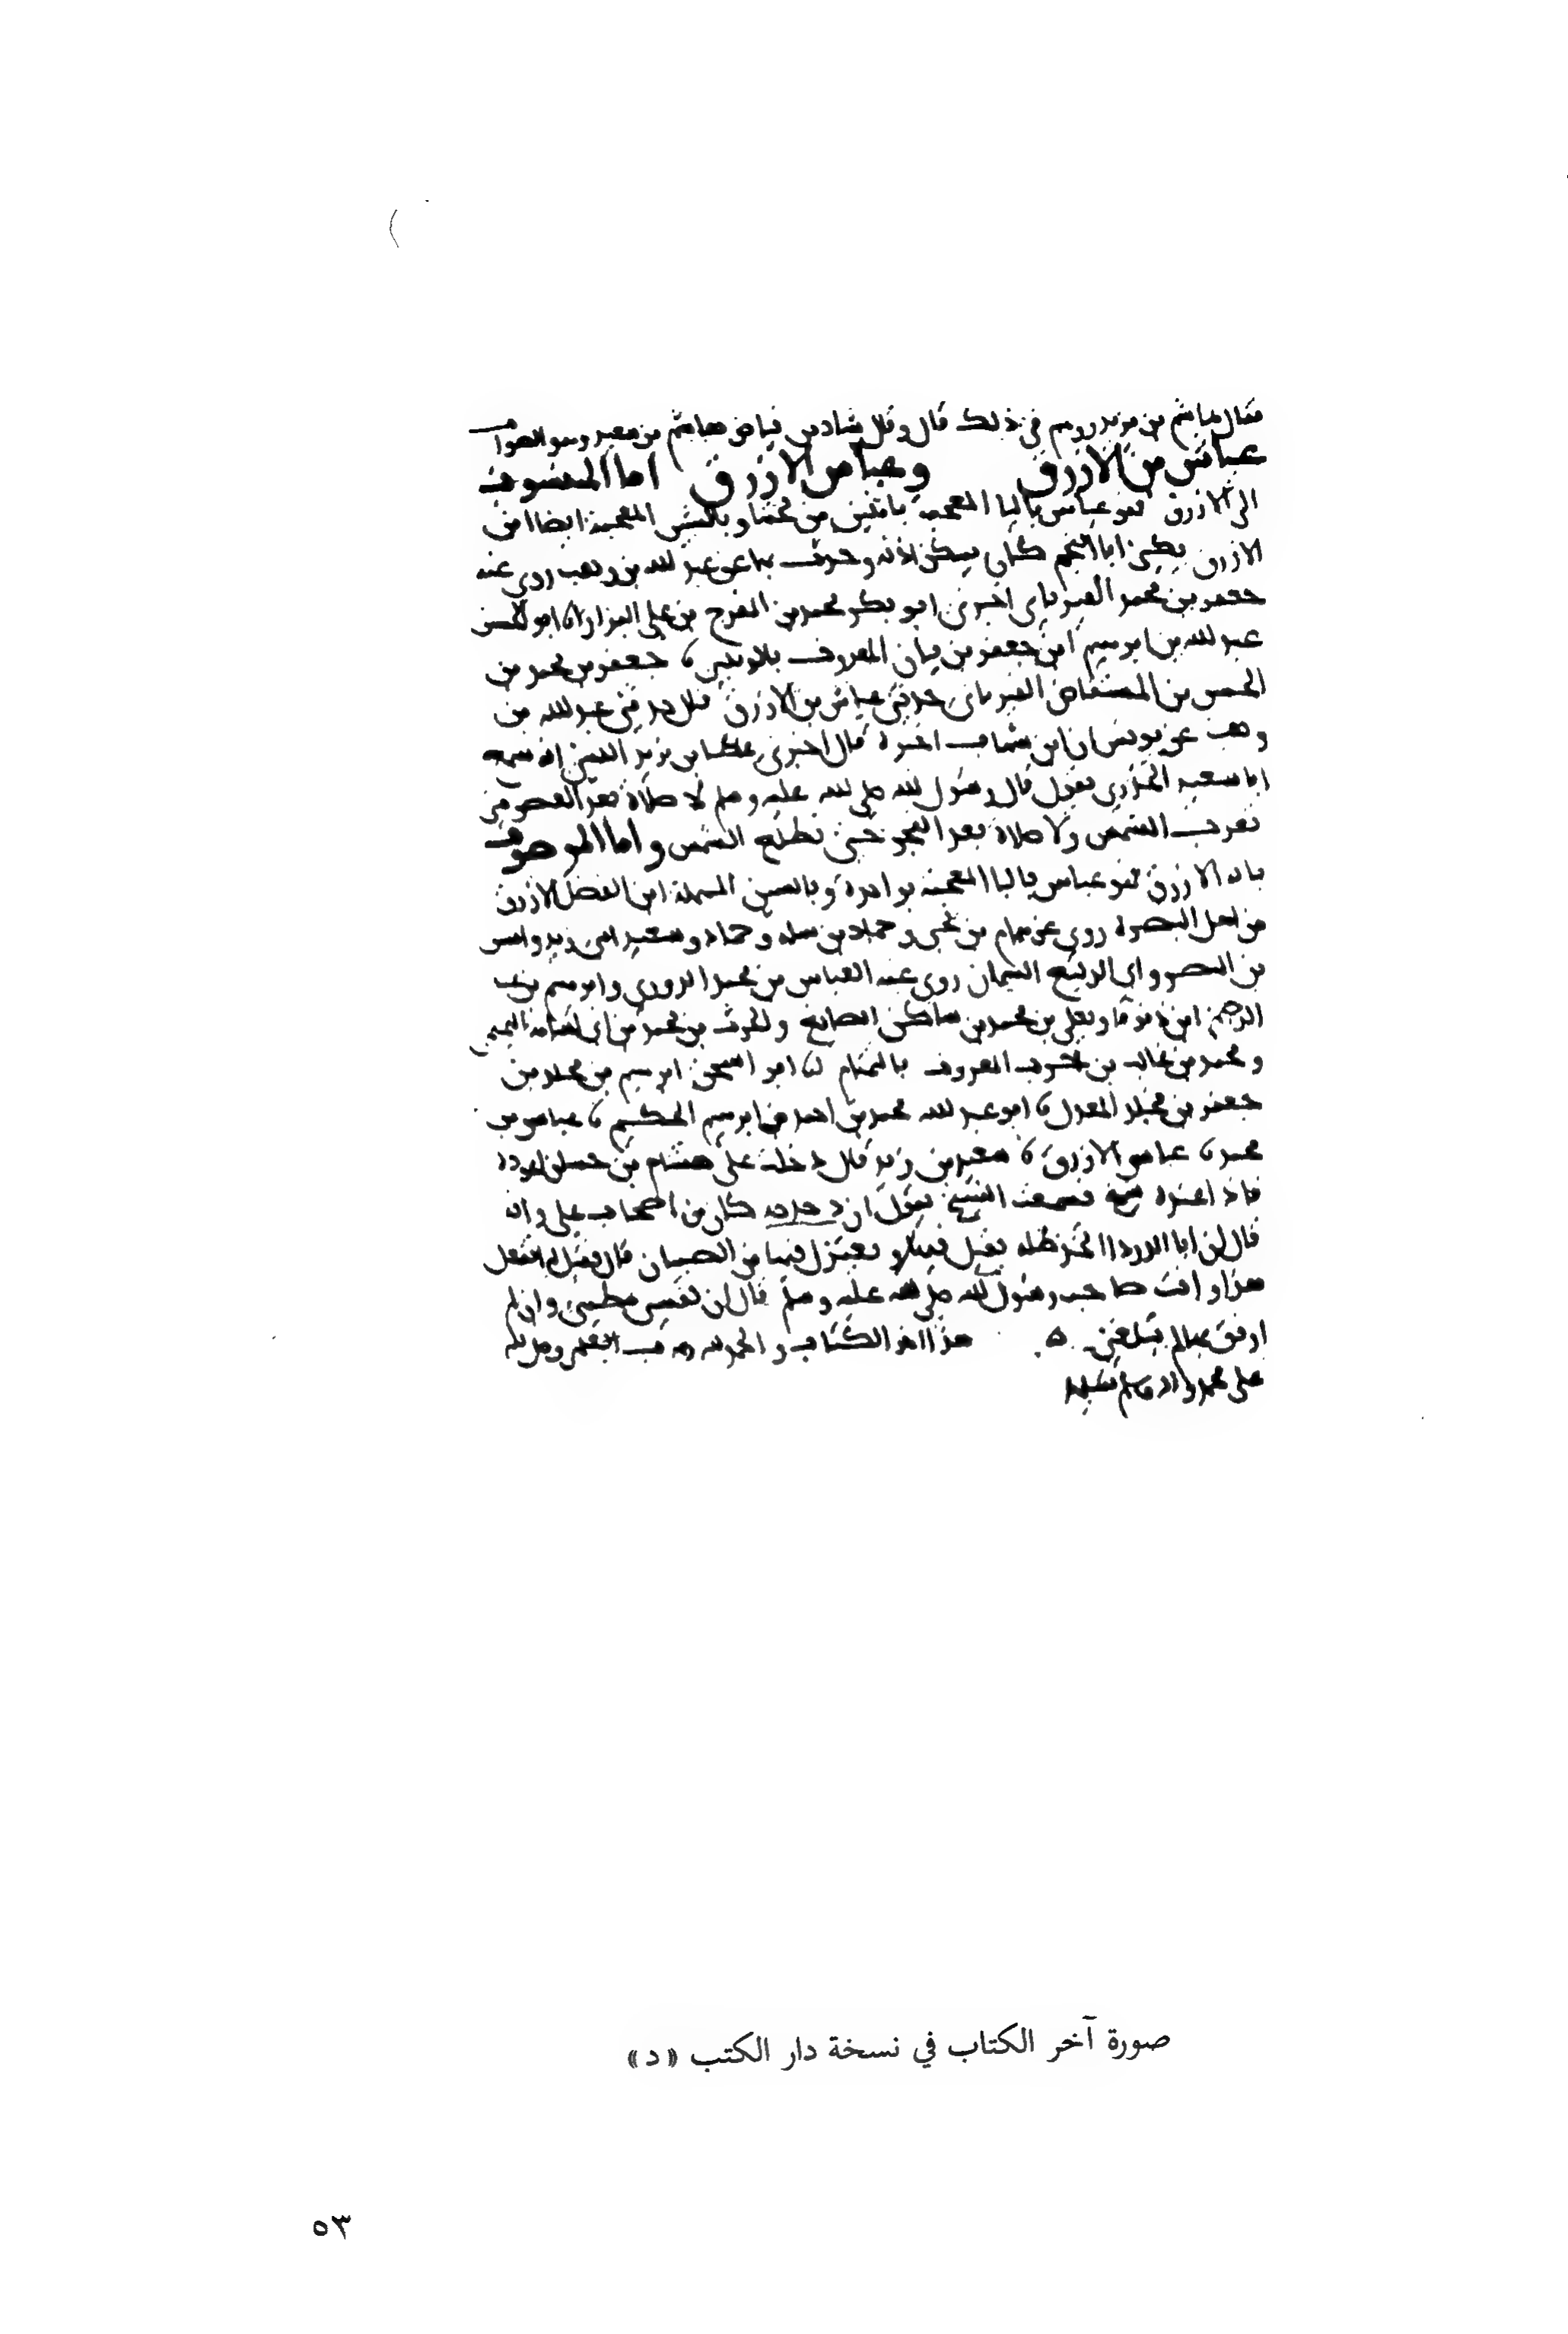 فقال هاشم بن مزيد ووهم في ذلك قال وقال شاذ بن فياض هاشم بن سعيد وهو الصواب
عياش بن الازرق وعباس الازرق اما المنسوب
الى الازرق فهو عياش باليا المعجمة باثنتين من تحتها وبالشين المعجمة ايضا ابن
الازرق يكنى ابا النجم كان يسكن اذنه وحدث بها عن عبد الله بن وهب روى عنه
جعفر بن محمد الفريابي اخبرني ابو بكر محمد بن الفرج بن علي البزار انا ابو الحسن
عبد الله بن ابرهيم ابن جعفر بن بيان المعروف بالزبيبي نا جعفر بن محمد بن
الحسن بن المستفاض الفريابي حدثني عياش بن الازرق قال حدثني عبد الله بن
وهب عن يونس ان ابن شهاب اخبره قال اخبرني عطا بن يزيد الليثي انه سمع
ابا سعيد الخدري يقول قال رسول الله صلى الله عليه وسلم لا صلاة بعد العصر حتى
تغرب الشمس ولا صلاة بعد الفجر حتى تطلع الشمس واما الموصوف
بانه الازرق فهو عباس بالبا المعجمة بواحدة وبالسين المهملة ابن الفضل الازرق
من اهل البصرة روى عن همام بن يحيى وحماد بن سلمه وحماد وسعيد ابني زيد
بن النصر وابي الربيع السمان روى عنه العباس بن محمد الدوري وابرهيم بن عبد
الرحيم ابن دنوقا وبعلي بن محمد بن ساكن الصايغ والحرث بن محمد بن ابي اسامه التميمي
ومحمد بن غالب بن حرب المعروف بالتمتام انا ابو اسحق ابرهيم بن مخلد بن
جعفر بن مخلد المعدل نا ابو عبد الله محمد بن احمد بن ابرهيم الحكيمي نا عباس بن
محمد نا عباس الازرق نا سعيد بن زيد قال دخلت على هشام بن حسان
فاذا عنده شيخ فسمعت الشيخ يقول ان كان من اصحاب علي وانه
قال ان ابا الدردا
هذا وانت صاحب رسول الله صلى الله عليه وسلم قال ان نفسي مطيتي وان لم
ارفق بها لم تبلغني ۵ هذا اخر الكتاب والحمد لله رب العلمين وصلى الله
على محمد واله وسلم تسليما
صورة آخر الكتاب في نسخة دار الكتب «د»
٥٣